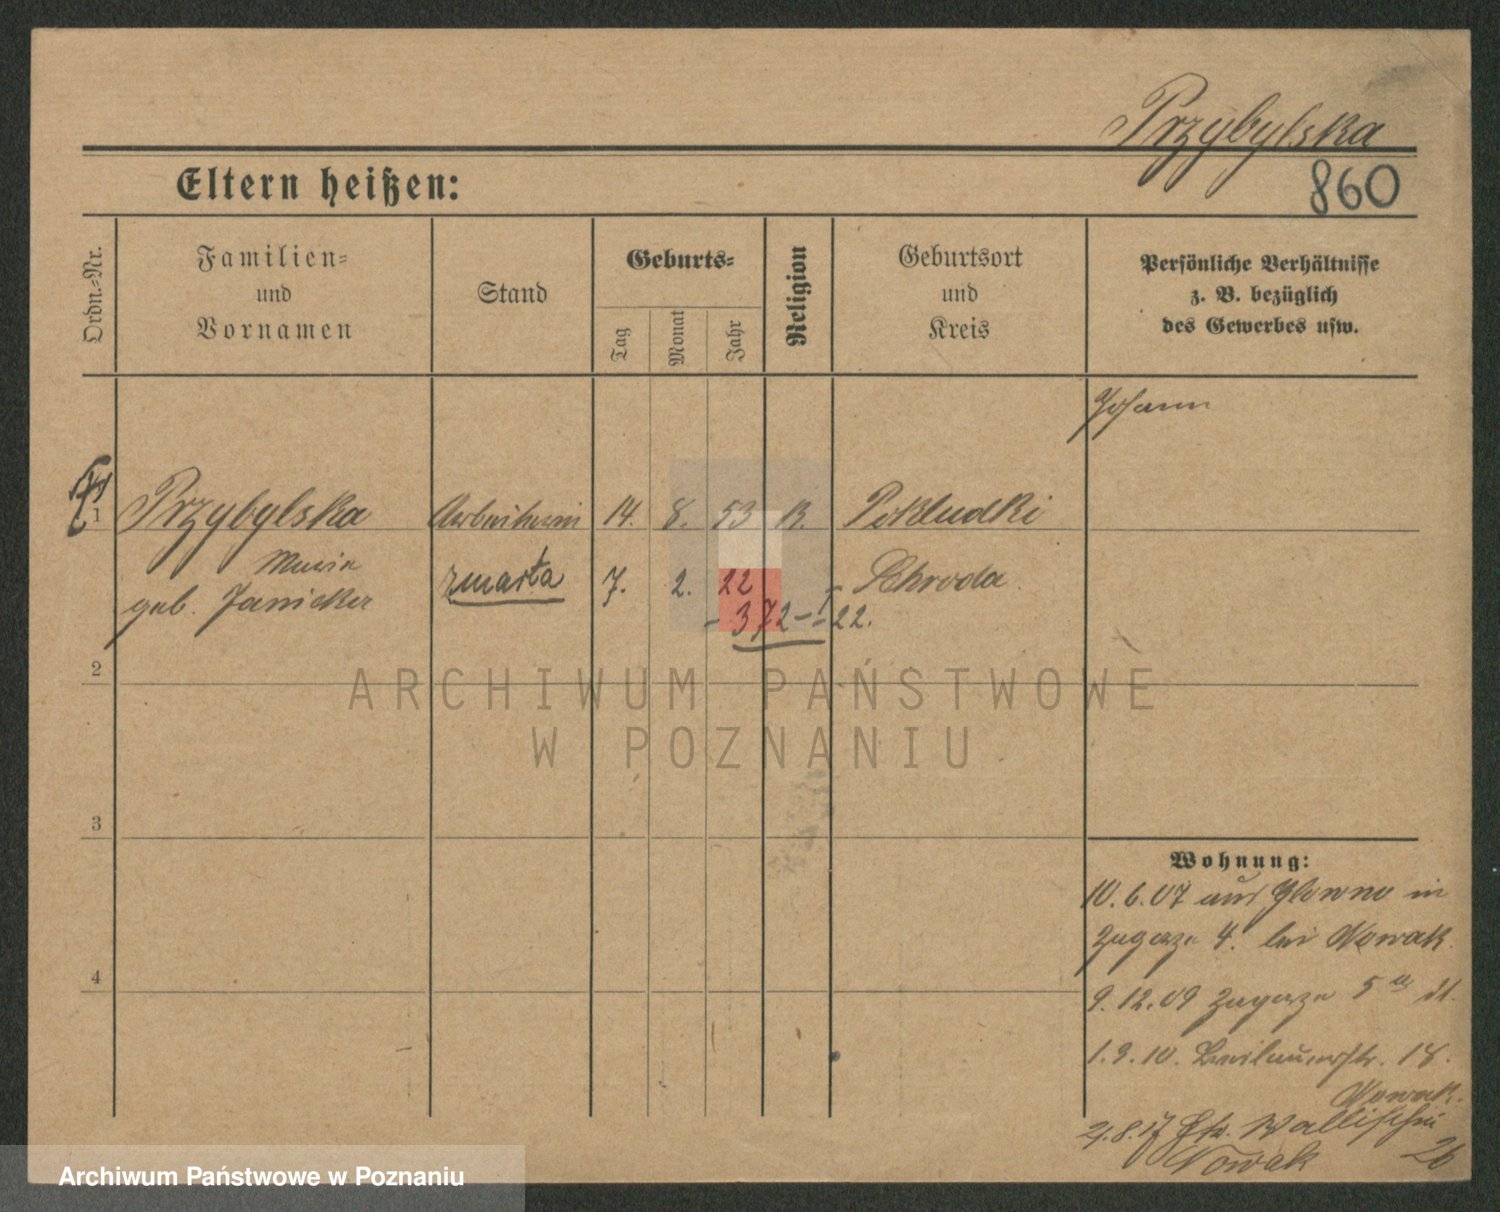 Przybylska
860
Eltern heißen:
Ordn.-Nr.
Familien-
und
Vornamen
Stand
Geburts-
Tag
Monat
Jahr
Religion
Geburtsort
und
Kreis
Persönliche Verhältnisse
z. B. bezüglich
des Gewerbes usw.
Johann
1 Przybylska Arbeiterin 14. 8. 53 K. Pokludki
Maria
geb. Janicka zmarła 7. 2. 22 Schroda
- 372 - 22.
2
3
4
ARCHIWUM PAŃSTWOWE
W POZNANIU
Wohnung:
10.6.07 aus Glowno in
Zagorze 4. bei Nowak.
9.12.09 Zagorze 5
1.9.10. 18.
Nowak.
21.8.17 Wallischei
Nowak 26
Archiwum Państwowe w Poznaniu